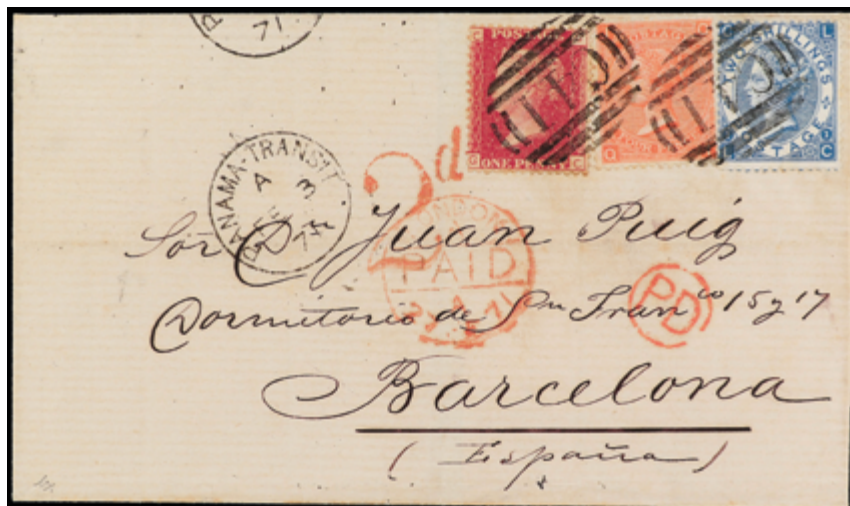 71
POSTAGE
ONE PENNY
POSTAGE
TWO SHILLINGS
POSTAGE
PANAMA-TRANSIT
A
3
71
2d
LONDON
PAID
71
PD
Sor Dn Juan Puig
Dormitorio de Sn Franco 15 y 17
Barcelona
(España)